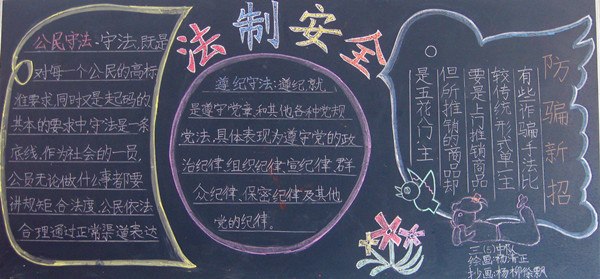 法制安全
公民守法:守法,既是
对每一个公民的高标
准要求,同时又是起码的
基本的要求中,守法是一条
底线,作为社会的一员,
公员无论做什么事都要
讲规矩、合法度,公民依法
合理通过正常渠道表达
遵纪守法:遵纪,就
是遵守党章,和其他各种党规
党法,具体表现为遵守党的政
治纪律,组织纪律,宣纪律,群
众纪律、保密纪律,及其他
党的纪律。
防骗新招
有些诈骗手法比
较传统形式单一主
要是上门推销商品
但所推销的商品却
是五花八门主
中队
绘画:杨 正
杨柳